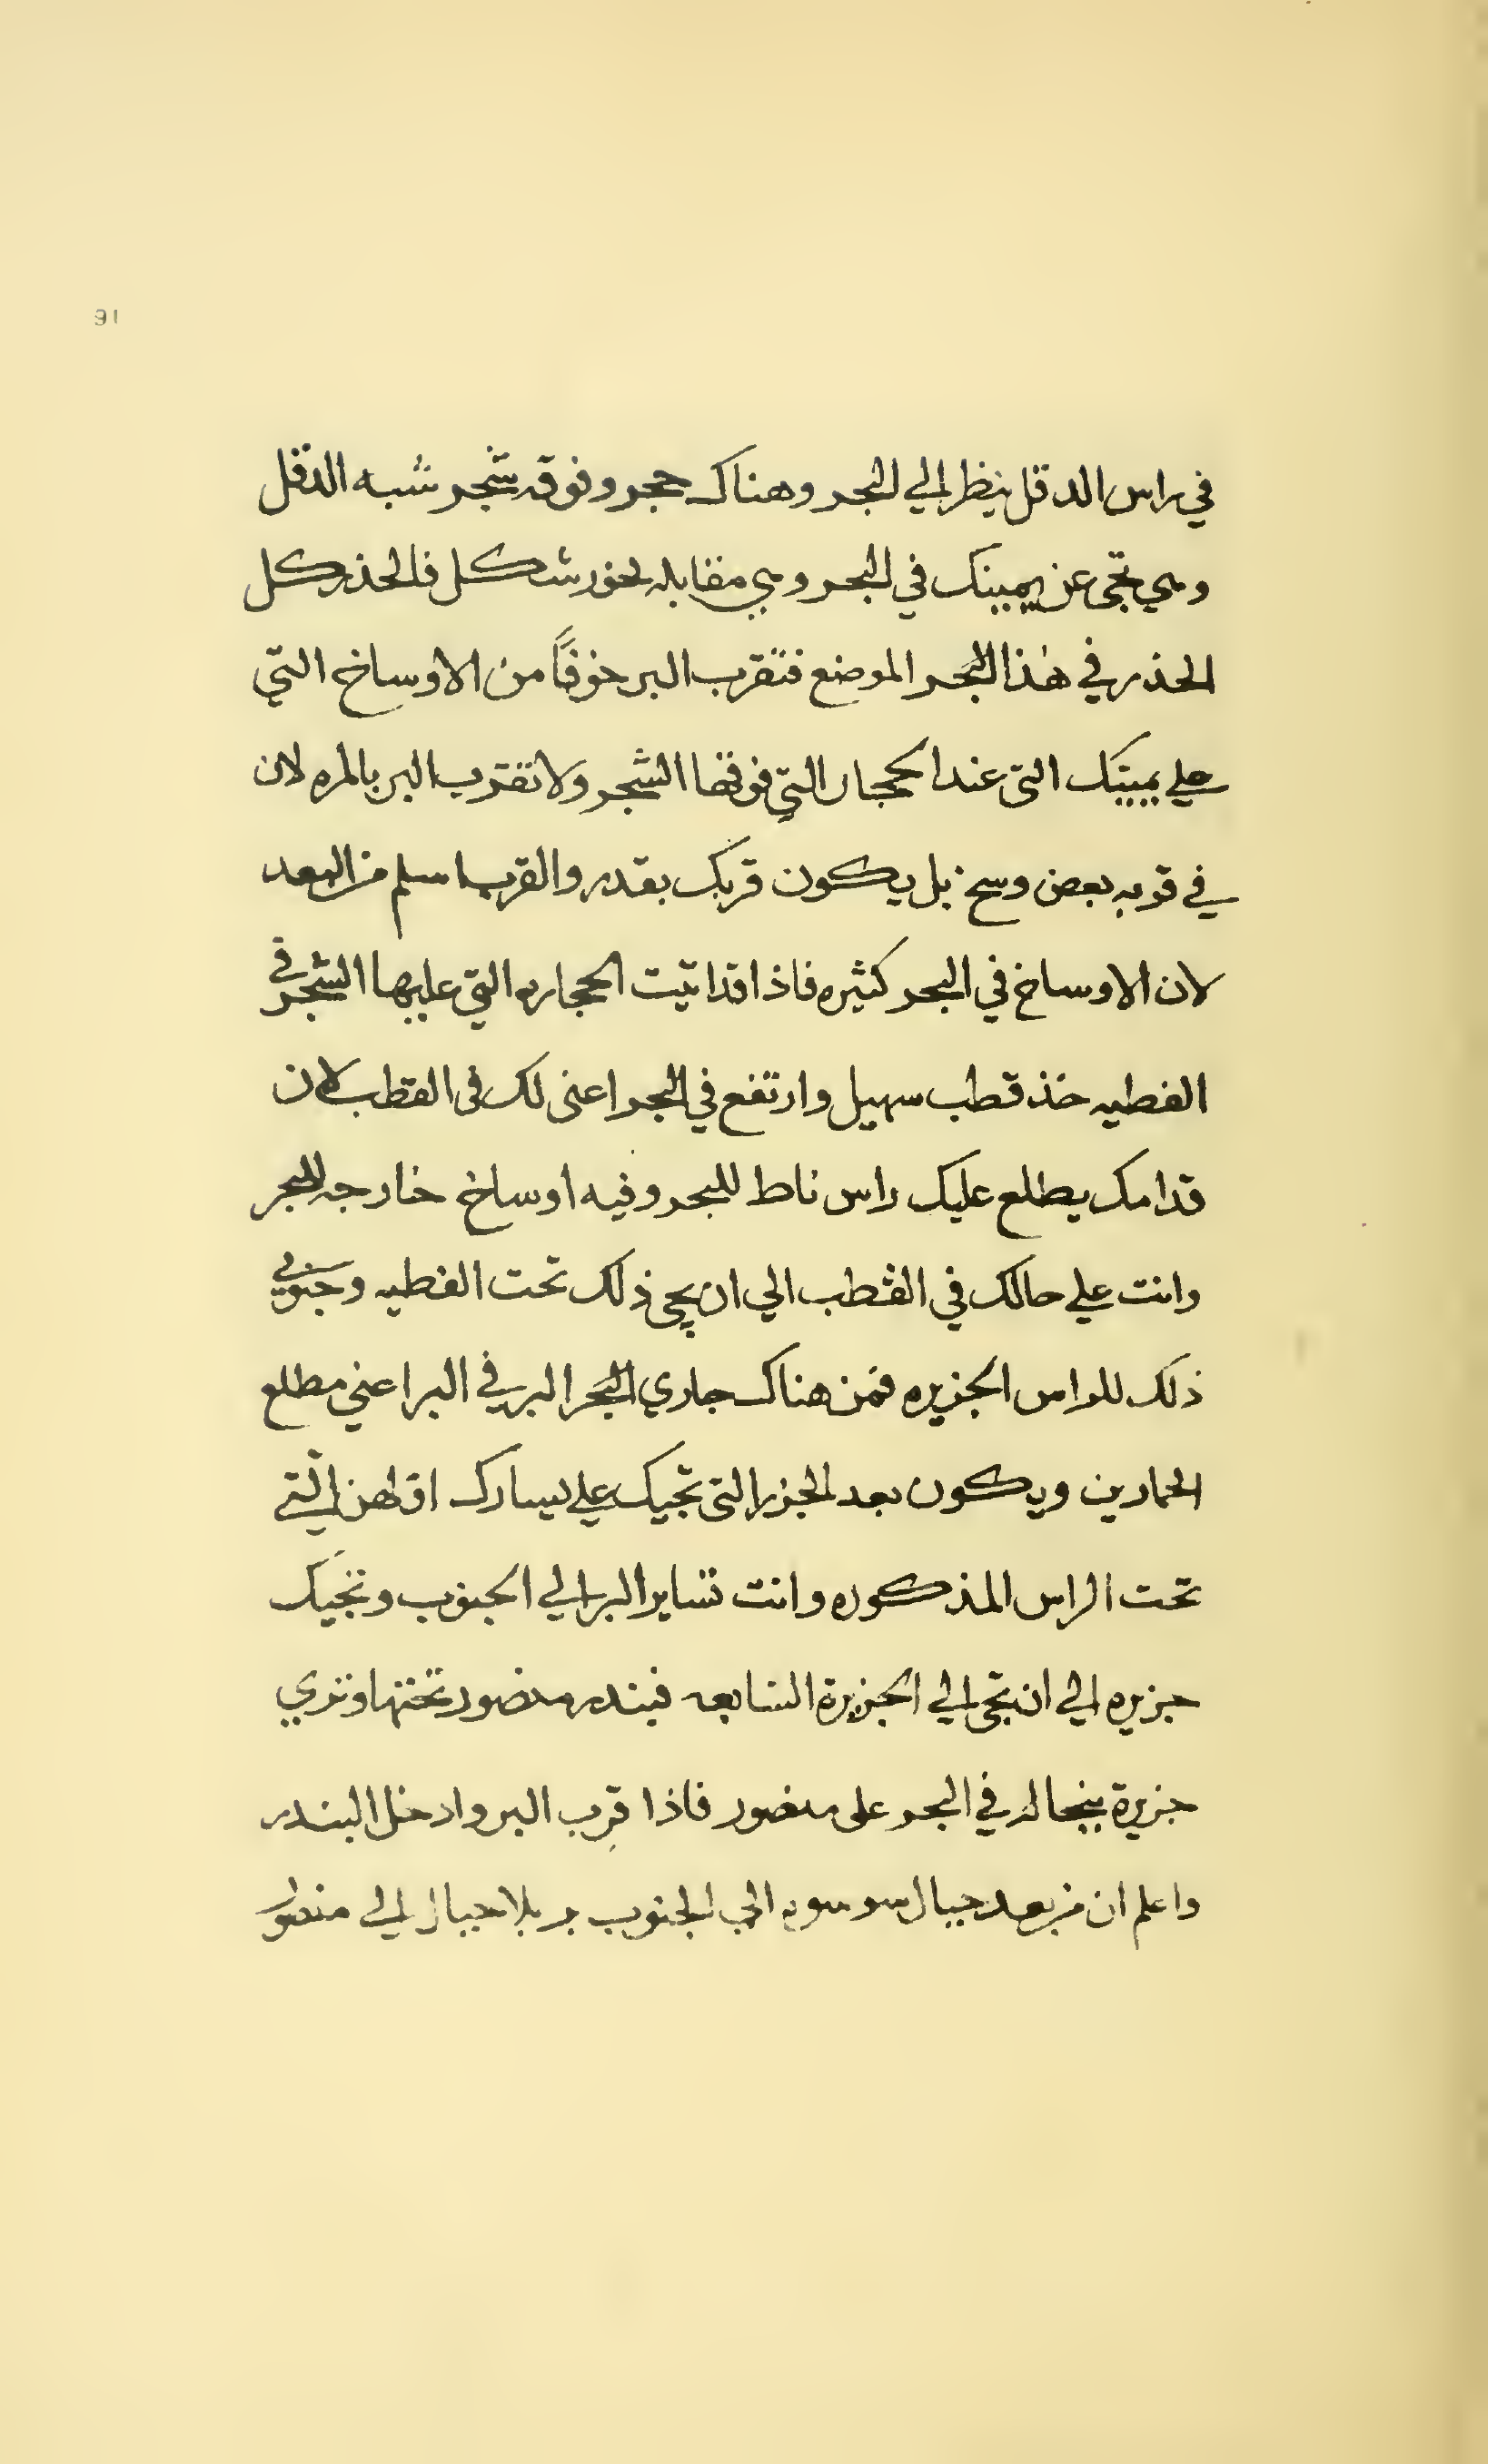 91
في راس الدقل ينظر الي البحر وهناك حجر وفوقه شجر شبه الدقل
وهي تجى عن يمينك في البحر وهي مقابله لخور شكل فالحذر كل
الحذر في هذا البحر الموضع فتقرب البر خوفاً من الاوساخ التي
علي يمينك التى عند الحجار التي فوقها الشجر ولا تقرب البر بالمره لان
في قربه بعض وسخ بل يكون قربك بقدر والقرب اسلم من البعد
لان الاوساخ في البحر كثيره فاذا قد اتيت الحجاره التي عليها الشجر في
القطيه خذ قطب سهيل وارتفع في البحر اعنى لك فى القطب لان
قدامك يطلع عليك راس ناط للبحر وفيه اوساخ خارجه للبحر
وانت علي حالك في القطب الي ان يجى ذلك تحت القطيه وجنوبي
ذلك للراس الجزيره فمن هناك جاري البحر البر في البر اعني مطلع
الحمارين ويكون بعد الجزر التى تجيك علي يسارك اولهن التي
تحت الراس المذكوره وانت تساير البر الي الجنوب وتجيك
جزيره الي ان تجى الي الجزيرة السابعه فبندر منصور تحتها وتري
جزيرة بنجاله في البحر على منصور فاذا قرب البر وادخل البندر
واعلم ان من بعد جبال سوسويه الي الجنوب بر بلا جبال الي منصور